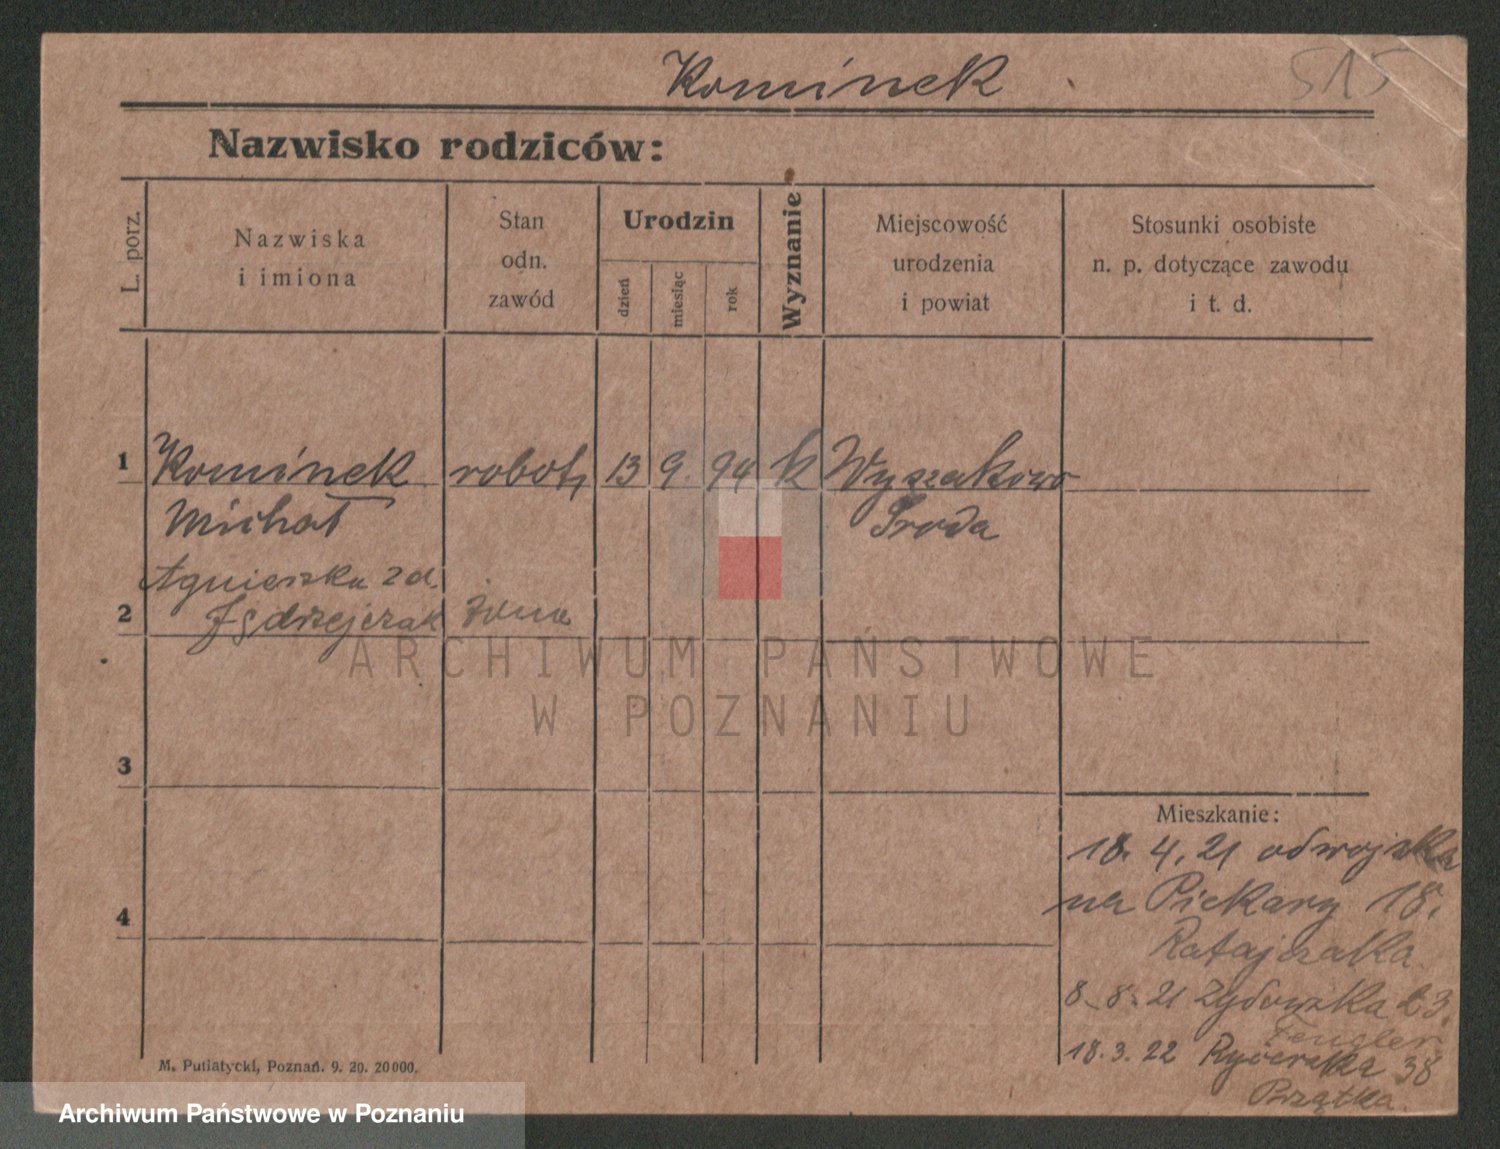 Kominek
515
Nazwisko rodziców:
L. porz.
Nazwiska
i imiona
Stan
odn.
zawód
Urodzin
dzień
miesiąc
rok
Wyznanie
Miejscowość
urodzenia
i powiat
Stosunki osobiste
n. p. dotyczące zawodu
i t. d.
1 Kominek robotn 13 9. 94 k Wyszakowo
Michał Środa
Agnieszka z d.
2 Jędrzejczak żona
ARCHIWUM PAŃSTWOWE
W POZNANIU
3
Mieszkanie:
18. 4. 21 od wojska
na Piekary 18.
4
Ratajczaka
8. 8. 21 Żydowska 23.
Fengler
18. 3. 22 Rycerska 38
Brzątka.
M. Putiatycki, Poznań. 9. 20. 20000.
Archiwum Państwowe w Poznaniu